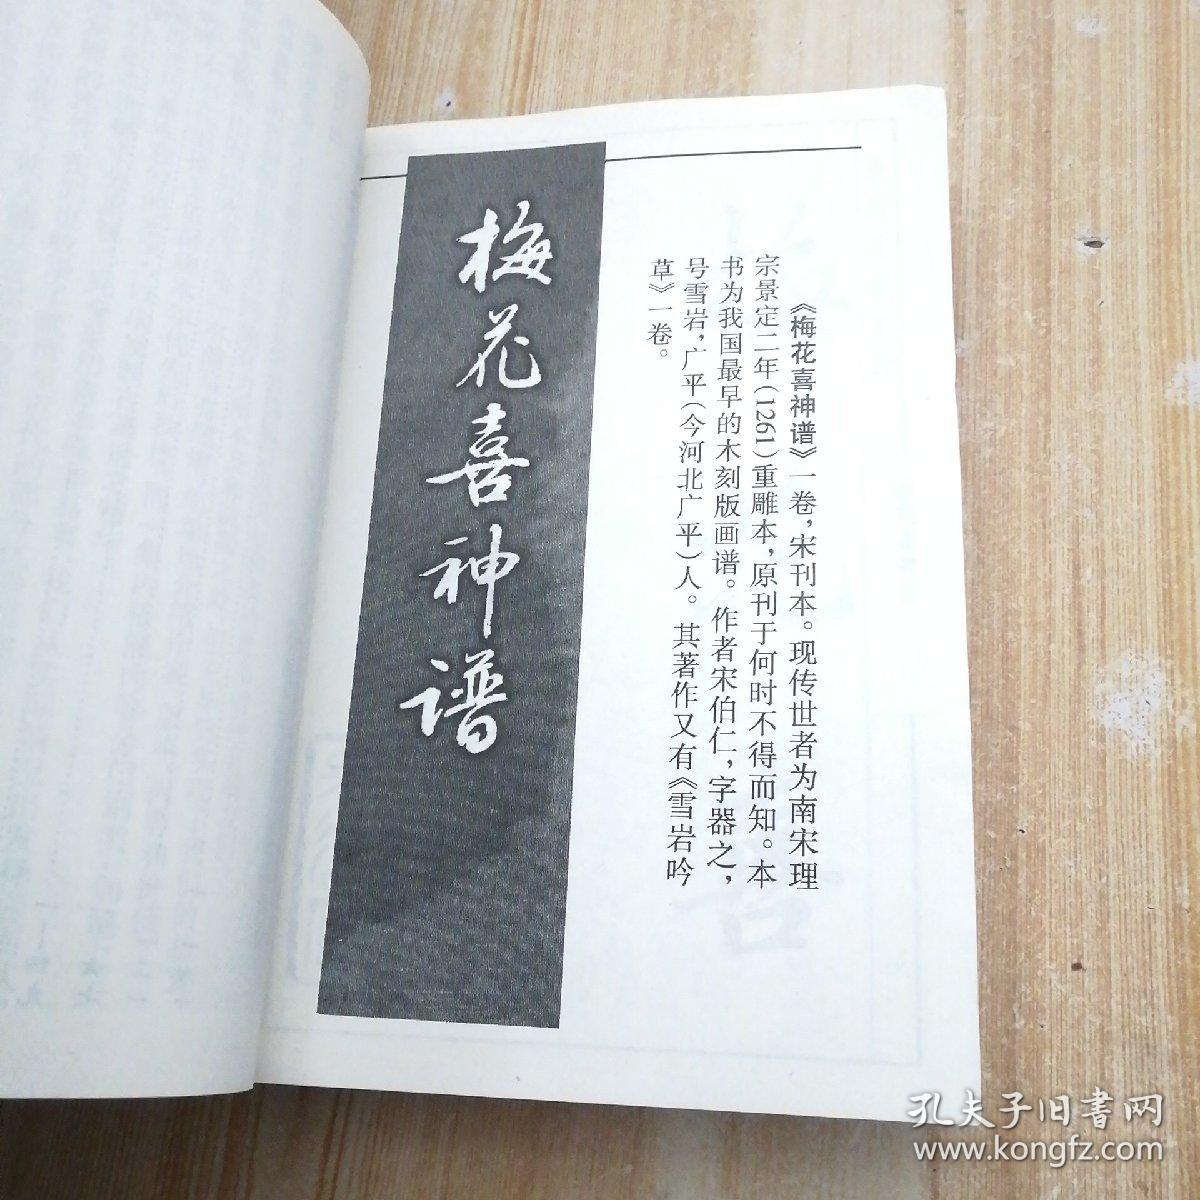 《梅花喜神谱》一卷，宋刊本。现传世者为南宋理
宗景定二年（1261）重雕本，原刊于何时不得而知。本
书为我国最早的木刻版画谱。作者宋伯仁，字器之，
号雪岩，广平（今河北广平）人。其著作又有《雪岩吟
草》一卷。
梅花喜神谱
孔夫子旧书网
www.kongfz.com